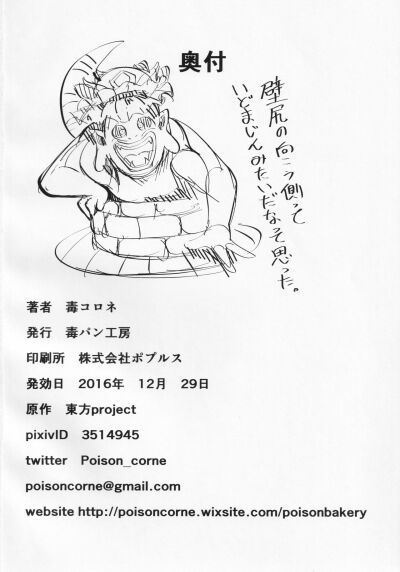 奥付
壁尻の向こう側って
いどまじんみたいだなって思った。
著者 毒コロネ
発行 毒パン工房
印刷所 株式会社ポプルス
発効日 2016年 12月 29日
原作 東方project
pixivID 3514945
twitter Poison_corne
poisoncorne@gmail.com
website http://poisoncorne.wixsite.com/poisonbakery